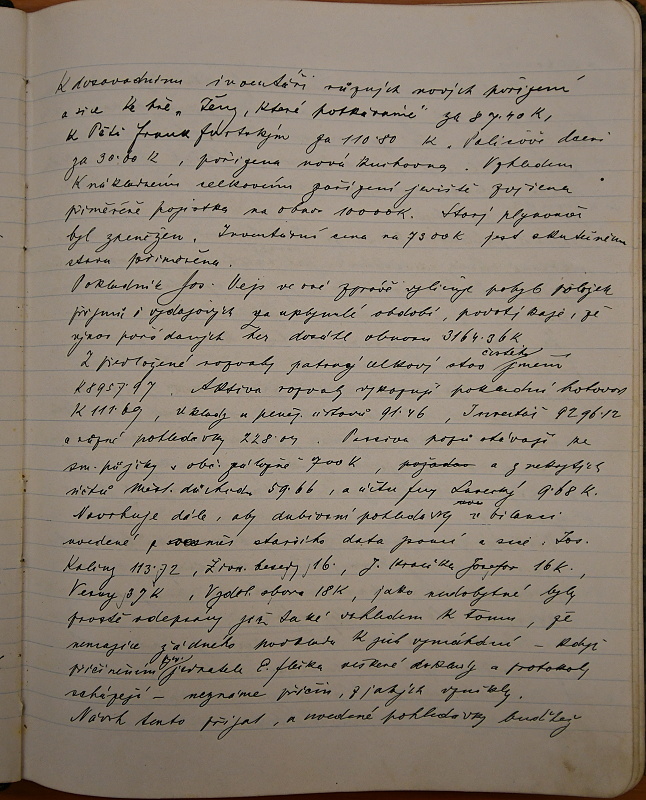 K dosavadnímu inventáři různých nových pořízení
a sice ke hře „Ženy, které potkáváme" za 87.40 K,
k Páté frankfurtským za 110.80 K. Paličově dceři
za 30.80 K, pořízena nová knihovna. Vzhledem
k nákladnému celkovému zařízení jeviště zvýšena
přiměřeně pojistka na obnos 10000K. Starý plynoměr
byl zpeněžen. Inventární cena na 7300K jest skutečnému
stavu přiměřena.
Pokladník Jos. Vejs ve své zprávě vyličuje pohyb položek
příjmů i výdajových za uplynulé období, podotýkaje, že
výnos pořádaných her dosáhl obnosu 3164.36K
Z předložené rozvahy patrný celkový stav čistého jmění
K8957.97. Aktiva rozvahy vykazují pokladní hotovost
K 111.69, vklady u peněž. ústavů 91.46, Inventář 9296.12
a různé pohledávky 228.04. Passiva pozůstávají ze
sm. půjčky u obč. záložně 700K, a z nekrytých
účtů měst. důchodu 59.66, a účtu fy 9.68 K.
Navrhuje dále, aby dubiosní pohledávky v bilanci
uvedené staršího data jsou a sice: Jos.
Kaliny 113.72, Živn. besedy 16., J. Josefov 16K.,
Vesny 39K, Vzděl. sboru 18K, jako nedobytné byly
prostě odepsány již také vzhledem k tomu, že
nemajíce žádného podkladu k jich vymáhání – když
přičiněním býv. jednatele E. veškeré doklady a protokoly
scházejí – neznáme příčin, z jakých vznikly.
Návrh tento přijat, a uvedené pohledávky buďtež